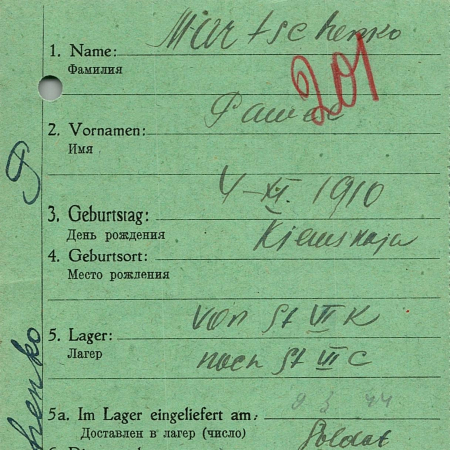 1. Name: Martschenko
Фамилия
201
2. Vornamen: Pawel
Имя
3. Geburtstag: 4-XI. 1910
День рождения
4. Geburtsort: Kiewskaja
Место рождения
5. Lager: von St VI K
Лагер
nach St VI C
5a. Im Lager eingeliefert am:
Доставлен в лагер (число)
Soldat
henko P